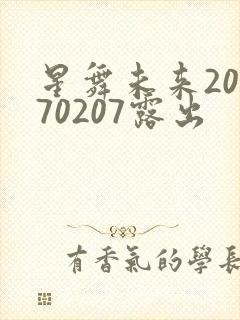 星舞未来20
70207露出
有香氣的學長